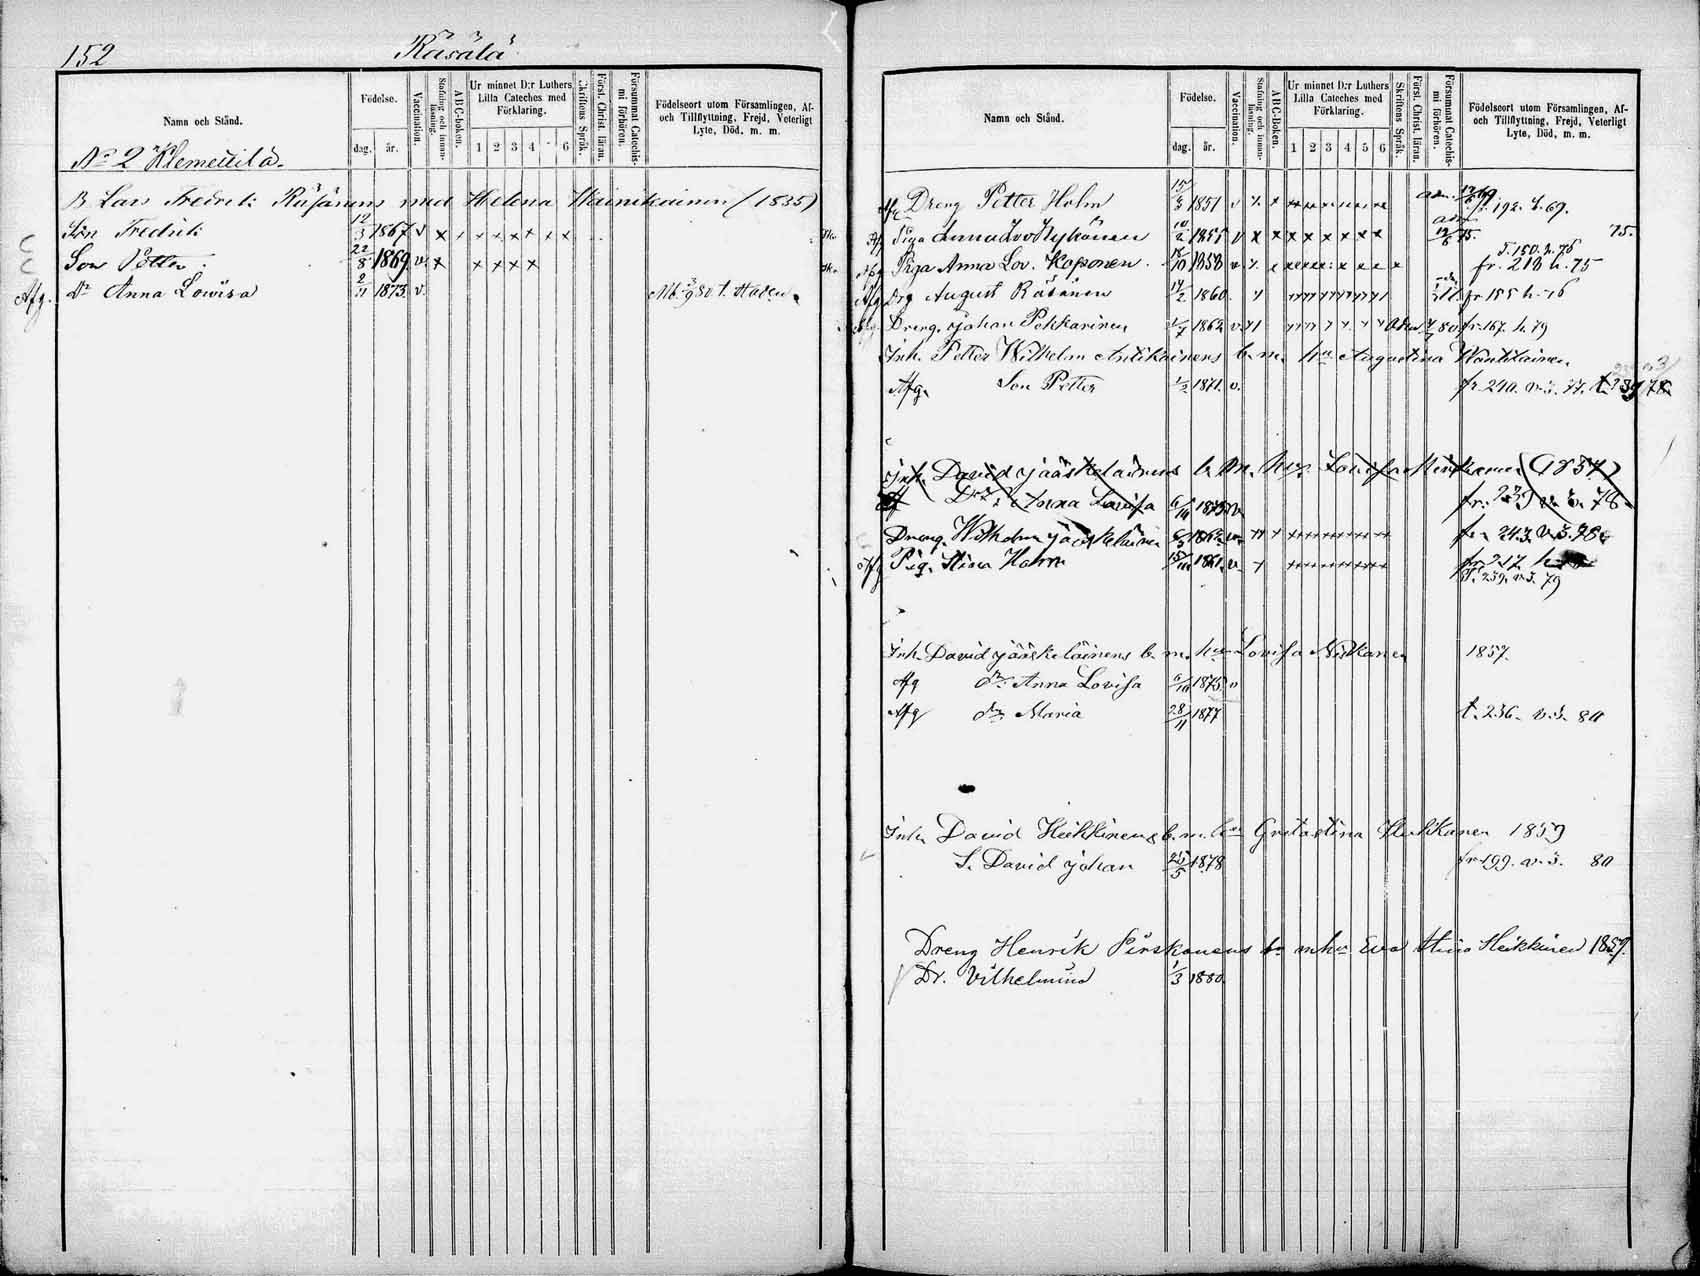 152 Räsälä
Namn och Stånd. Födelse. dag. år. Vaccination. Stafning och innan-läsning. ABC-boken. Ur minnet D:r Luthers Lilla Cateches med Förklaring. 1 2 3 4 6 Skriftens Språk. Först. Christ. läran. Försummat Catechis-mi förhören. Födelseort utom Församlingen, Af- och Tillflyttning, Frejd, Veterligt Lyte, Död, m. m.
No 2 Klemettilä.
B Lars Fredrik Räsänens med Helena Hainikainen (1835)
Son Fredrik 12/3 1867 v x x x x x x x
Son Petter 22/8 1869 v. x x x x x
Afg. Dr Anna Lowisa 2/11 1873. v.
Namn och Stånd. Födelse. dag. år. Vaccination. Stafning och innan-läsning. ABC-boken. Ur minnet D:r Luthers Lilla Cateches med Förklaring. 1 2 3 4 5 6 Skriftens Språk. Först. Christ. läran. Försummat Catechis-mi förhören. Födelseort utom Församlingen, Af- och Tillflyttning, Frejd, Veterligt Lyte, Död, m. m.
Afg Dreng Petter Holm 15/3 1851 v x x fr. 192. h. 69.
Afg Piga Anna Lov Nykänen 10/2 1855 v x x 75.
t. 150. h. 76
Afg Piga Anna Lov. Koponen. 1858 v. x x fr. 218 h. 75
Afg Drg August Räsänen 14/2 1860 fr 155 h. 76
Dreng Johan Pekkarinen 1/7 1862 v. fr. 167. h. 79
Inh. Petter Wilhelm Antikainens b. m. hu Augustina Wäntilainen
Afg. Son Petter 1/2 1871. v. fr. 240. v. s. 77. t. 239 78
Inh. David Jääskeläinens b. m. hu. Lovisa Niskanen (1857)
Af Dr. Anna Lovisa 6/10 1875 v. fr. 239 v. s. 78.
Dreng. Wilhelm Jääskeläinen 1862 v. fr. 213 v. s. 78.
Afg Pig. Stina Holm 15/10 1861. v. fr. 217 h.
t. 239. v. s. 79
Inh. David Jääskeläinens b. m. hu Lovisa Niskanen 1857.
Afg dr. Anna Lovisa 6/10 1875 v
Afg dr. Maria 28/11 1877 t. 236. v. s. 80
Inh. David Heikkinens b. m. hu Gretastina Huhkanen 1859
S. David Johan 25/5 1878 fr 199. v. s. 80
Dreng Henrik Pirskanens b. m hu Eva Stina Heikkinen 1859.
Dr. Vilhelmina 1/3 1880.